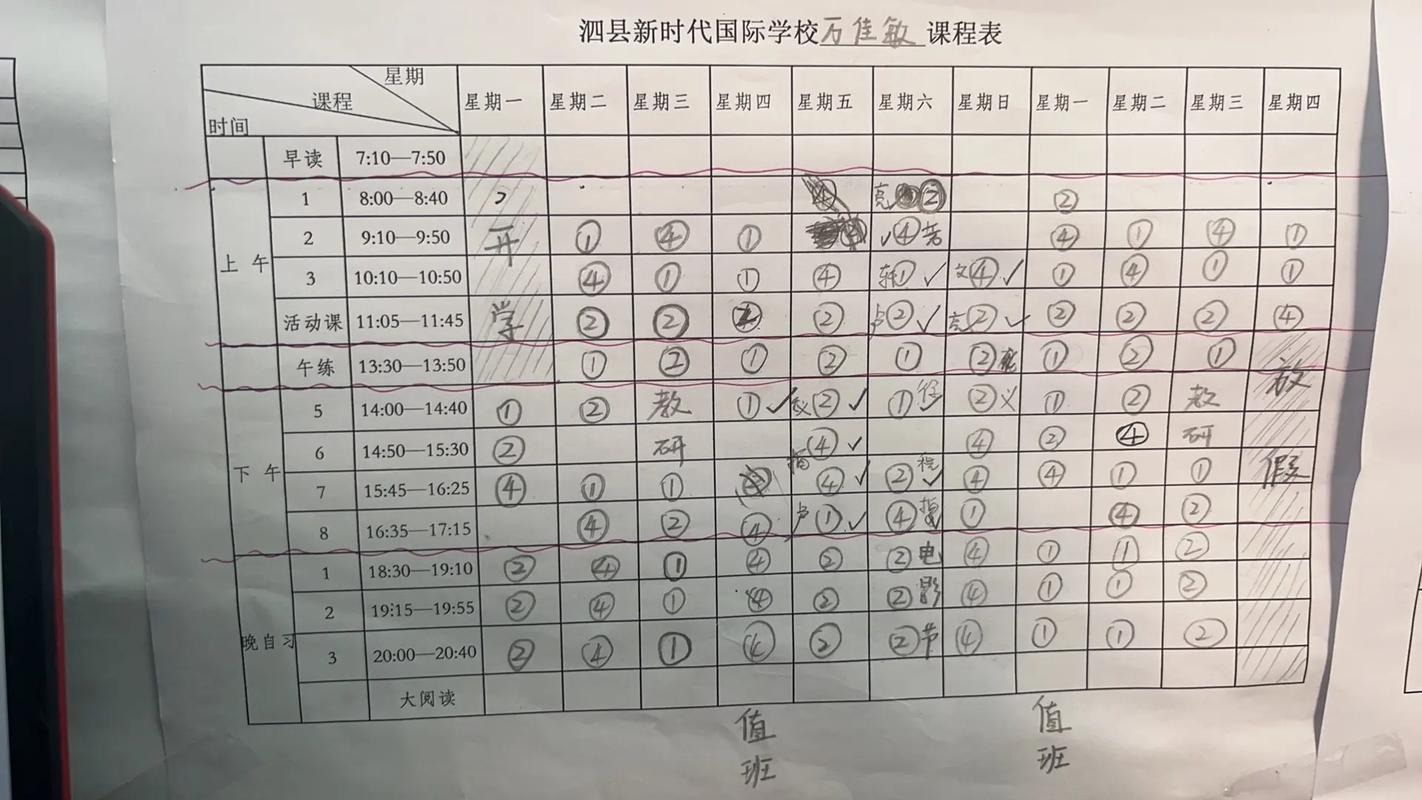 泗县新时代国际学校万佳敏 课程表
星期 课程 时间 星期一 星期二 星期三 星期四 星期五 星期六 星期日 星期一 星期二 星期三 星期四
早读 7:10—7:50
上午 1 8:00—8:40 亮 ② ②
2 9:10—9:50 开 ① ④ ① ✓④ ④ ① ④ ①
3 10:10—10:50 ④ ① ① ④ ① ✓ 文④ ✓ ① ④ ① ①
活动课 11:05—11:45 学 ② ② ② 卢② ✓ 亮② ✓ ② ② ② ④
午练 13:30—13:50 ① ② ① ② ① ② ① ② ① 放
下午 5 14:00—14:40 ① ② 教 ① ✓ ② ✓ ① ② ① ② 教
6 14:50—15:30 ② 研 ④ ✓ ④ ② ④ 研
7 15:45—16:25 ④ ① ① ④ ✓ ② ✓ ④ ④ ① ① 假
8 16:35—17:15 ④ ② ④ 卢① ✓ ④ ① ④ ②
晚自习 1 18:30—19:10 ② ④ ① ④ ② ②电 ④ ① ① ②
2 19:15—19:55 ② ④ ① ④ ② ②影 ④ ① ① ②
3 20:00—20:40 ② ④ ① ④ ② ②节 ④ ① ① ②
大阅读
值班 值班